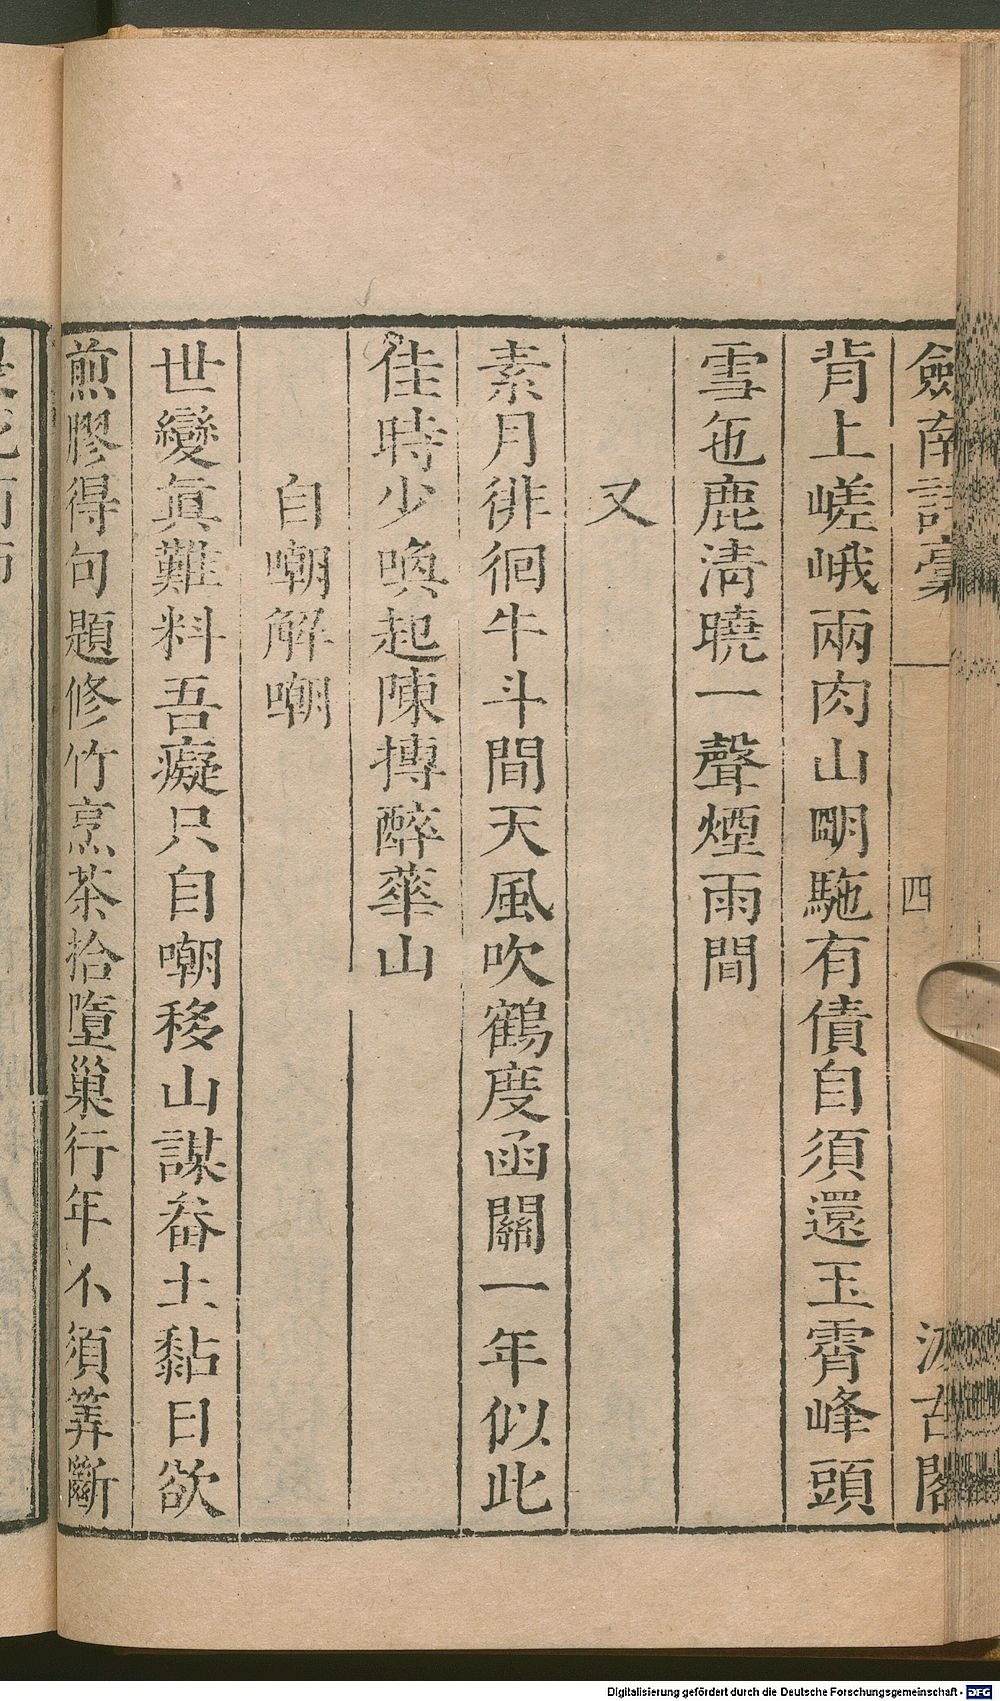 劒南詩稾
四
汲古閣
背上嵯峨兩肉山明駞有債自須還玉霄峰頭
雪㐌鹿淸曉一聲煙雨間
又
素月徘徊牛斗間天風吹鶴度函關一年似此
佳時少喚起陳摶醉華山
自嘲解嘲
世變眞難料吾癡只自嘲移山謀畚土黏日欲
煎膠得句題修竹烹茶拾墮巢行年不須筭斷
Digitalisierung gefördert durch die Deutsche Forschungsgemeinschaft - DFG